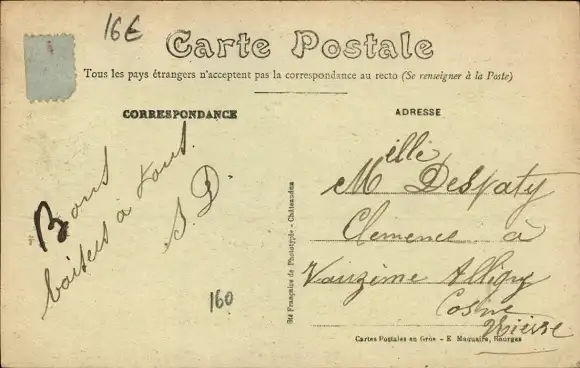 16€
Carte Postale
Tous les pays étrangers n'acceptent pas la correspondance au recto (Se renseigner à la Poste)
CORRESPONDANCE
ADRESSE
Bons
baisers à tous.
S. D.
160
Sté Française de Phototypie - Châteaudun
Melle Despaty
Clemence à
Alligny
Cosne
Nièvre
Cartes Postales en Gros - E. Maquaire, Bourges